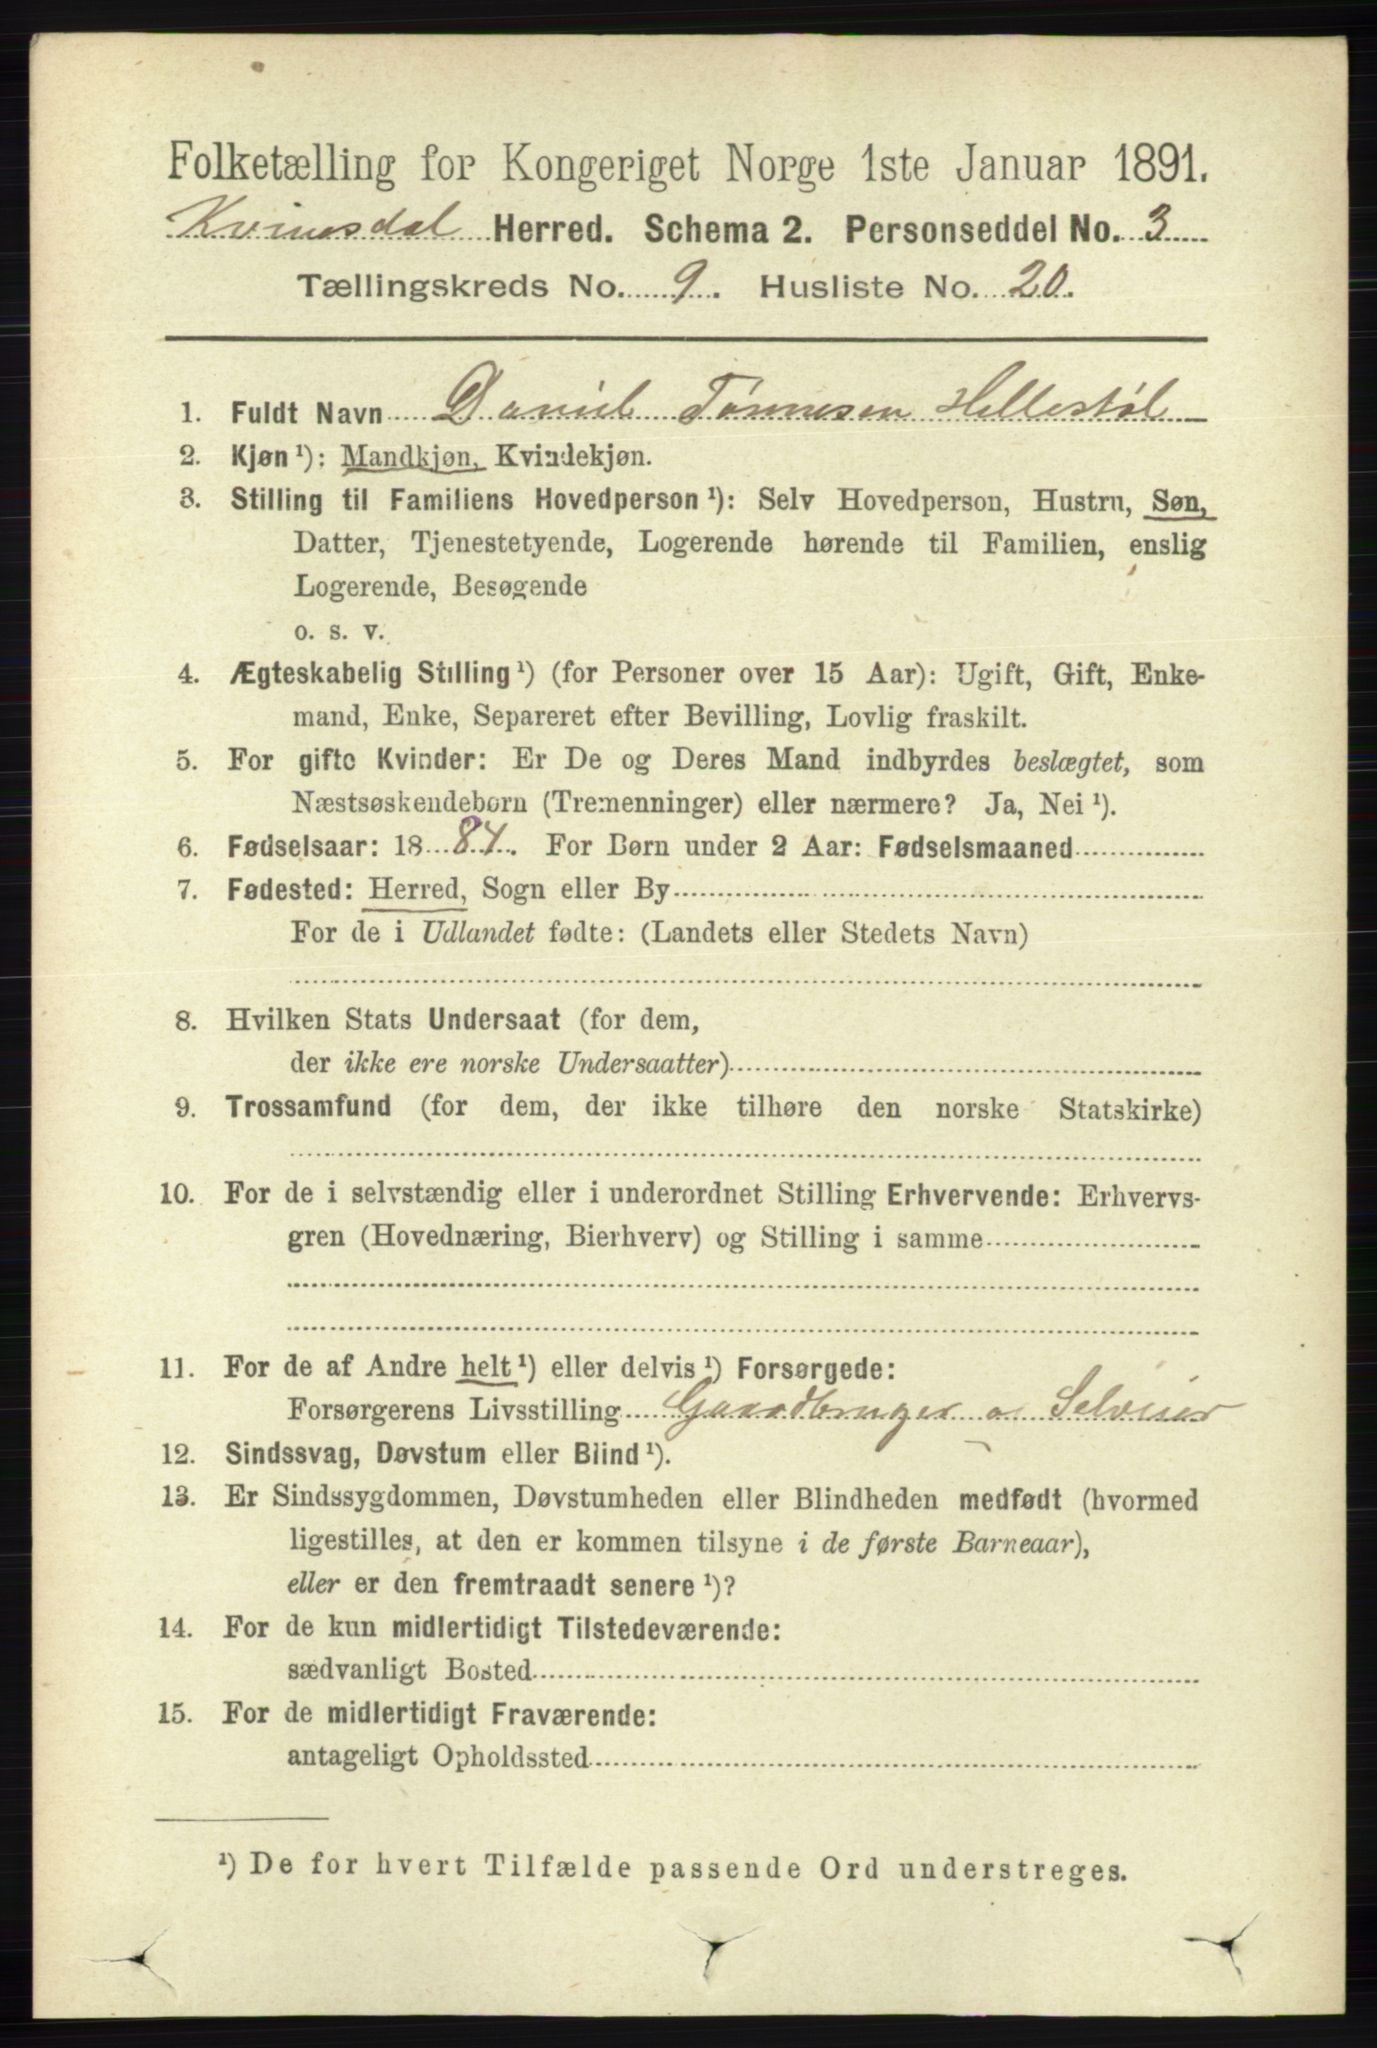 Folketælling for Kongeriget Norge 1ste Januar 1891.
Kvinesdal Herred. Schema 2. Personseddel No. 3
Tællingskreds No. 9. Husliste No. 20.
1. Fuldt Navn Daniel Tønnesen Hellestøl
2. Kjøn ¹): Mandkjøn, Kvindekjøn.
3. Stilling til Familiens Hovedperson ¹): Selv Hovedperson, Hustru, Søn,
Datter, Tjenestetyende, Logerende hørende til Familien, enslig
Logerende, Besøgende
o. s. v.
4. Ægteskabelig Stilling ¹) (for Personer over 15 Aar): Ugift, Gift, Enke-
mand, Enke, Separeret efter Bevilling, Lovlig fraskilt.
5. For gifte Kvinder: Er De og Deres Mand indbyrdes beslægtet, som
Næstsøskendebørn (Tremenninger) eller nærmere? Ja, Nei ¹).
6. Fødselsaar: 1884. For Børn under 2 Aar: Fødselsmaaned
7. Fødested: Herred, Sogn eller By
For de i Udlandet fødte: (Landets eller Stedets Navn)
8. Hvilken Stats Undersaat (for dem,
der ikke ere norske Undersaatter)
9. Trossamfund (for dem, der ikke tilhøre den norske Statskirke)
10. For de i selvstændig eller i underordnet Stilling Erhvervende: Erhvervs-
gren (Hovednæring, Bierhverv) og Stilling i samme
11. For de af Andre helt ¹) eller delvis ¹) Forsørgede:
Forsørgerens Livsstilling Gaardbruger o. Selveier
12. Sindssvag, Døvstum eller Blind ¹).
13. Er Sindssygdommen, Døvstumheden eller Blindheden medfødt (hvormed
ligestilles, at den er kommen tilsyne i de første Barneaar),
eller er den fremtraadt senere ¹)?
14. For de kun midlertidigt Tilstedeværende:
sædvanligt Bosted
15. For de midlertidigt Fraværende:
antageligt Opholdssted
¹) De for hvert Tilfælde passende Ord understreges.